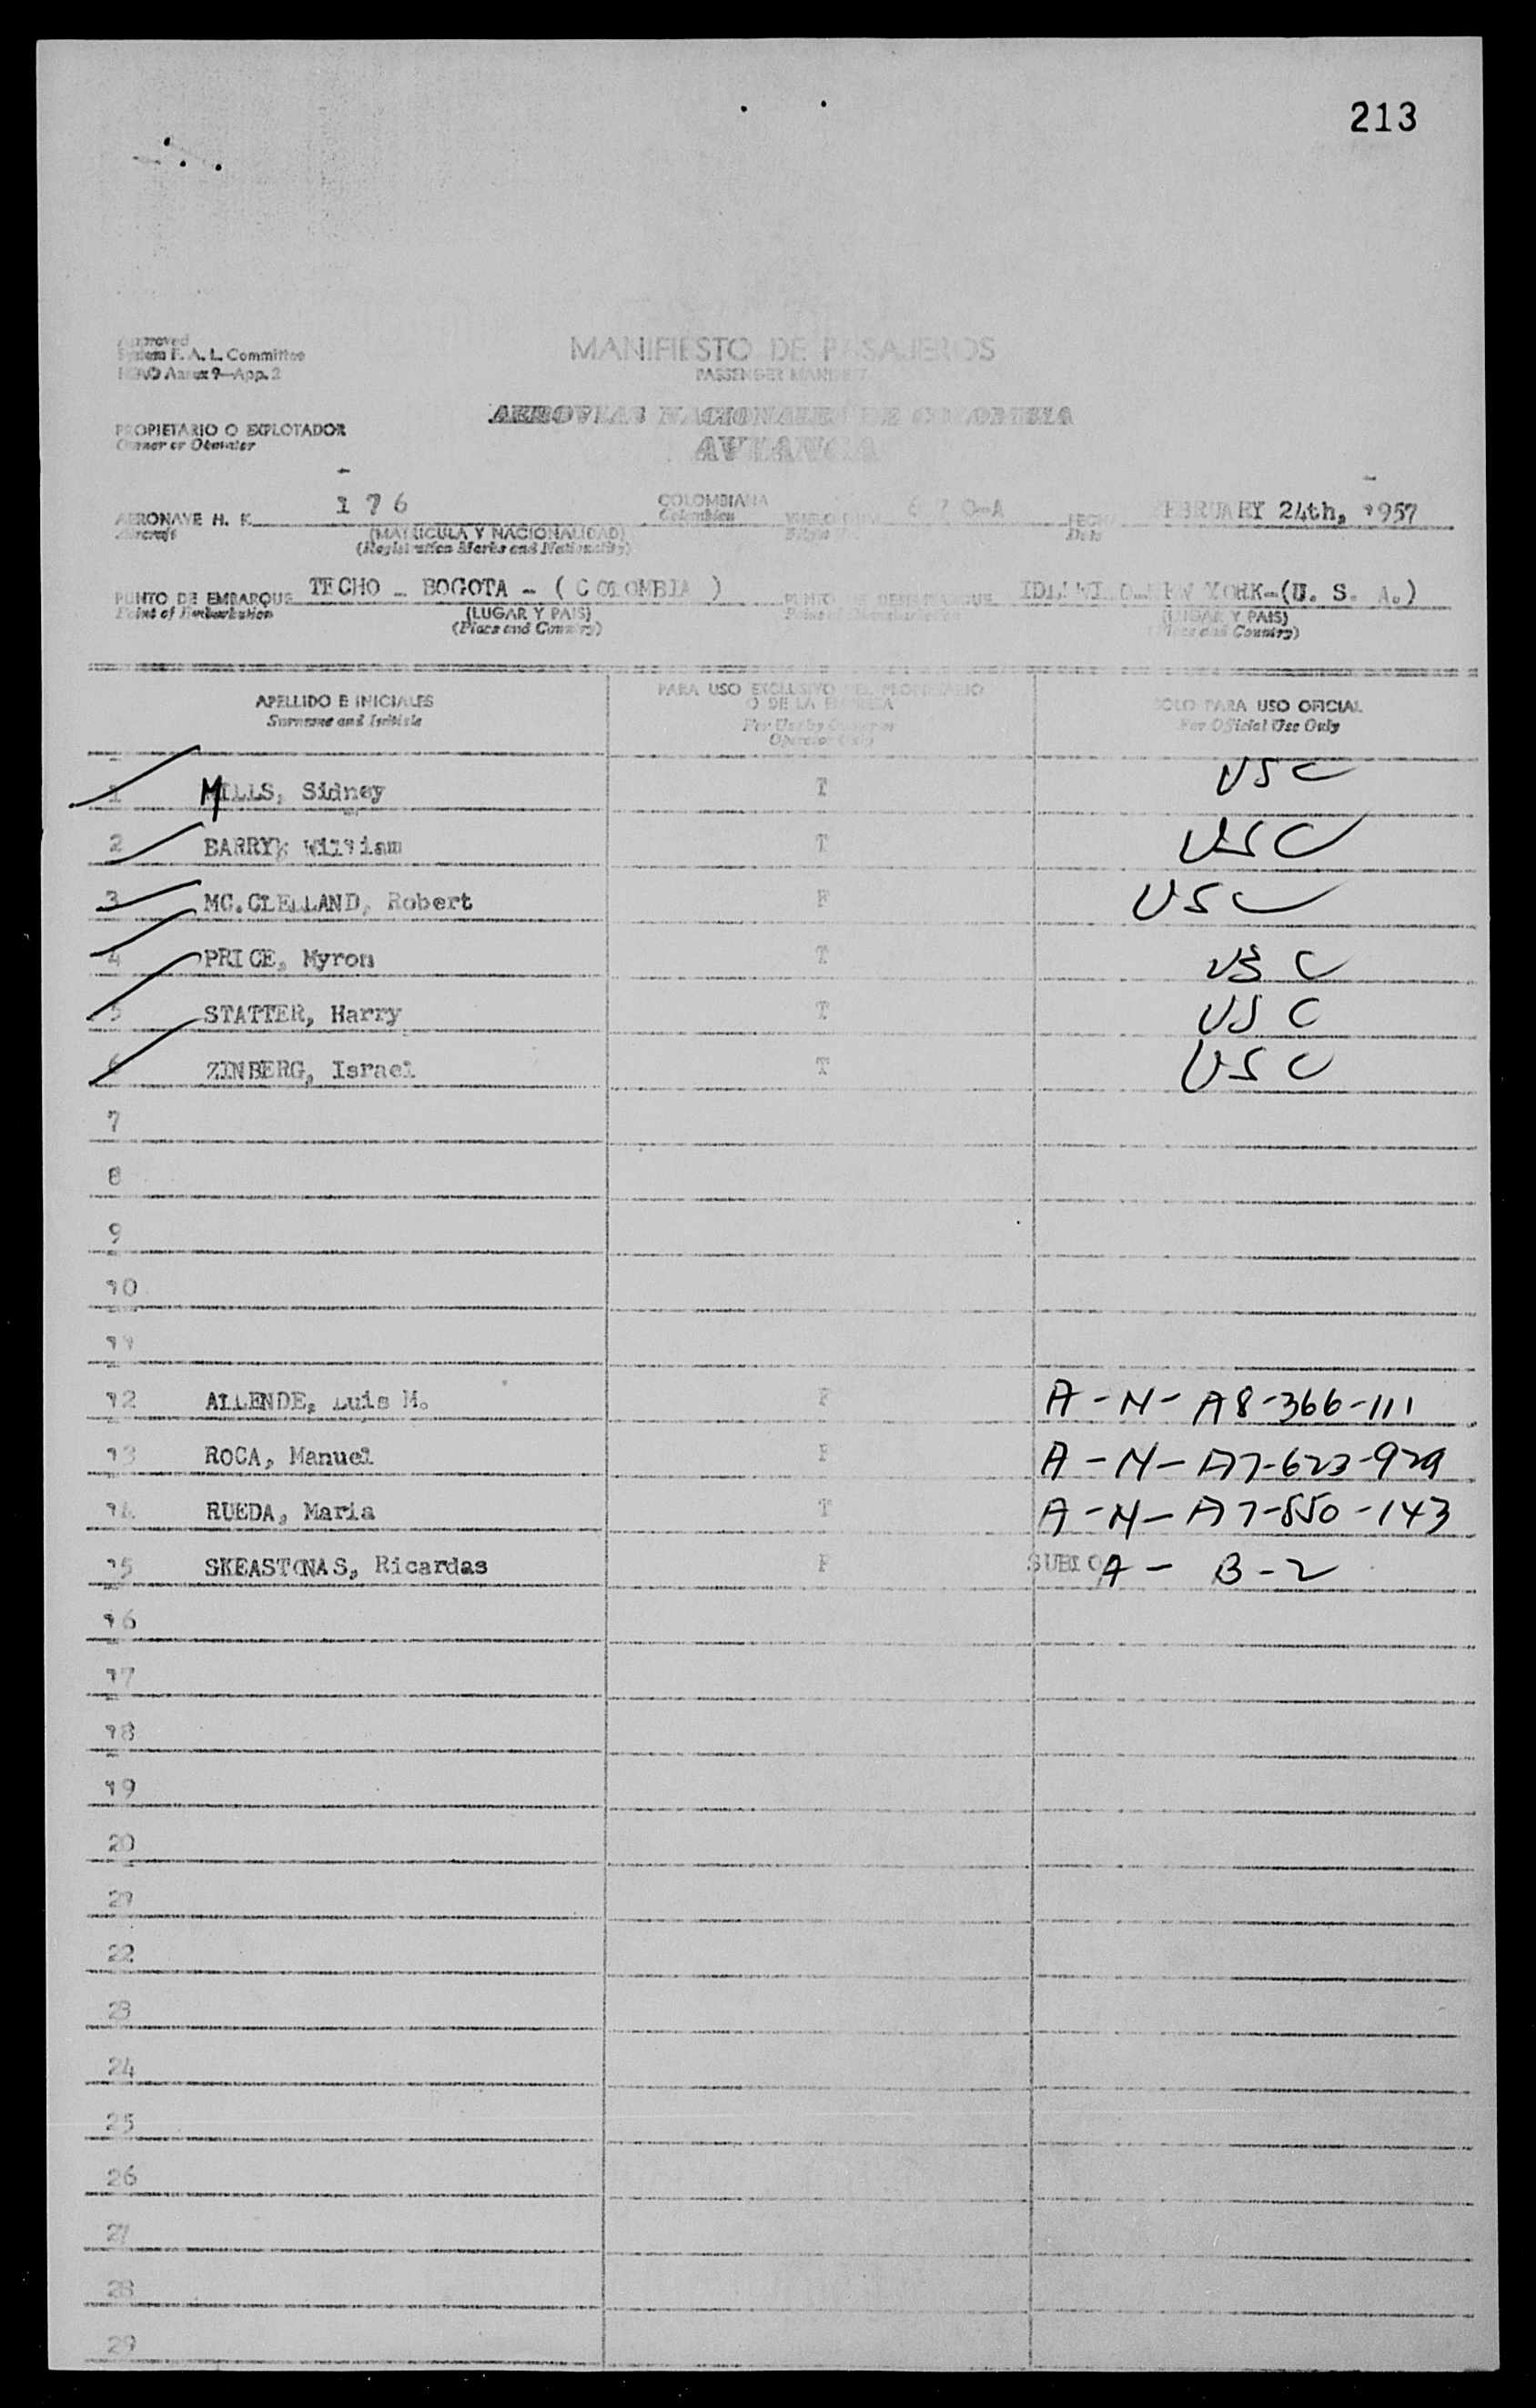 213
Approved
System F. A. L. Committee
ICAO Annex 9—App. 2
MANIFIESTO DE PASAJEROS
PASSENGER MANIFEST
PROPIETARIO O EXPLOTADOR
Owner or Operator
AEROVIAS NACIONALES DE COLOMBIA
AVIANCA
AERONAVE H. K. 176 COLOMBIANA 670-A FEBRUARY 24th, 1957
Aircraft (MATRICULA Y NACIONALIDAD) Colombian
(Registration Marks and Nationality)
PUNTO DE EMBARQUE TECHO - BOGOTA - (COLOMBIA) PUNTO DE DESEMBARQUE IDLEWILD-NEW YORK-(U. S. A.)
Point of Embarkation (LUGAR Y PAIS) (LUGAR Y PAIS)
(Place and Country) (Place and Country)
APELLIDO E INICIALES PARA USO EXCLUSIVO DEL PROPIETARIO O DE LA EMPRESA SOLO PARA USO OFICIAL
Surname and Initials For Use by Owner or Operator Only For Official Use Only
1 MILLS, Sidney T USC
2 BARRY, William T USC
3 MC.CLELLAND, Robert F USC
4 PRICE, Myron T USC
5 STATTER, Harry T USC
6 ZINBERG, Israel T USC
7
8
9
10
11
12 ALLENDE, Luis M. F A-N-A8-366-111
13 ROCA, Manuel F A-N-A7-623-929
14 RUEDA, Maria T A-N-A7-550-143
15 SKEASTONAS, Ricardas F A- B-2
16
17
18
19
20
21
22
23
24
25
26
27
28
29